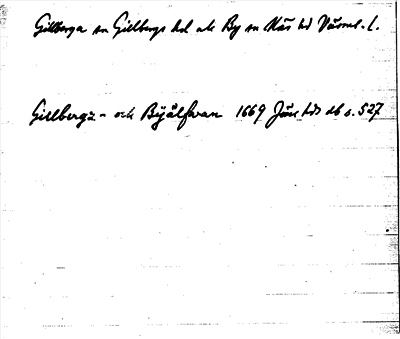 Gillberga sn Gillbergs hd och By sn Näs hd Värml. l.
Gillberga- och Byälfwan 1669 Jöse hds db s. 527